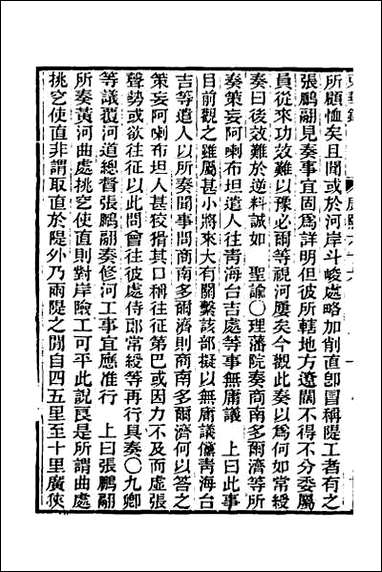 所顧恤矣且聞或於河岸斗峻處略加削直卽冒稱隄工者有之
張鵬翮見奏事宜固爲詳明但彼所轄地方遼闊不得不分委屬
員從來功效難以豫必爾等視河屢矣今觀此奏以爲何如常綬
奏曰後效難於逆料誠如　聖諭〇理藩院奏商南多爾濟等所
奏策妄阿喇布坦遣人往青海台吉處等事無庸議　上曰此事
目前觀之雖屬甚小將來大有關繫該部擬以無庸議儻青海台
吉等遣人以所奏聞事問商南多爾濟則商南多爾濟何以答之
策妄阿喇布坦人甚狡猾其口稱往征第巴或因力不及而虛張
聲勢或欲往征以此問會往彼處侍郎常綬等再行具奏〇九卿
等議覆河道總督張鵬翮奏修河工事宜應准行　上曰張鵬翮
所奏黃河曲處挑空使直則對岸險工可平此說良是所謂曲處
挑空使直非謂取直於隄外乃兩隄之閒自四五里至十里廣俠